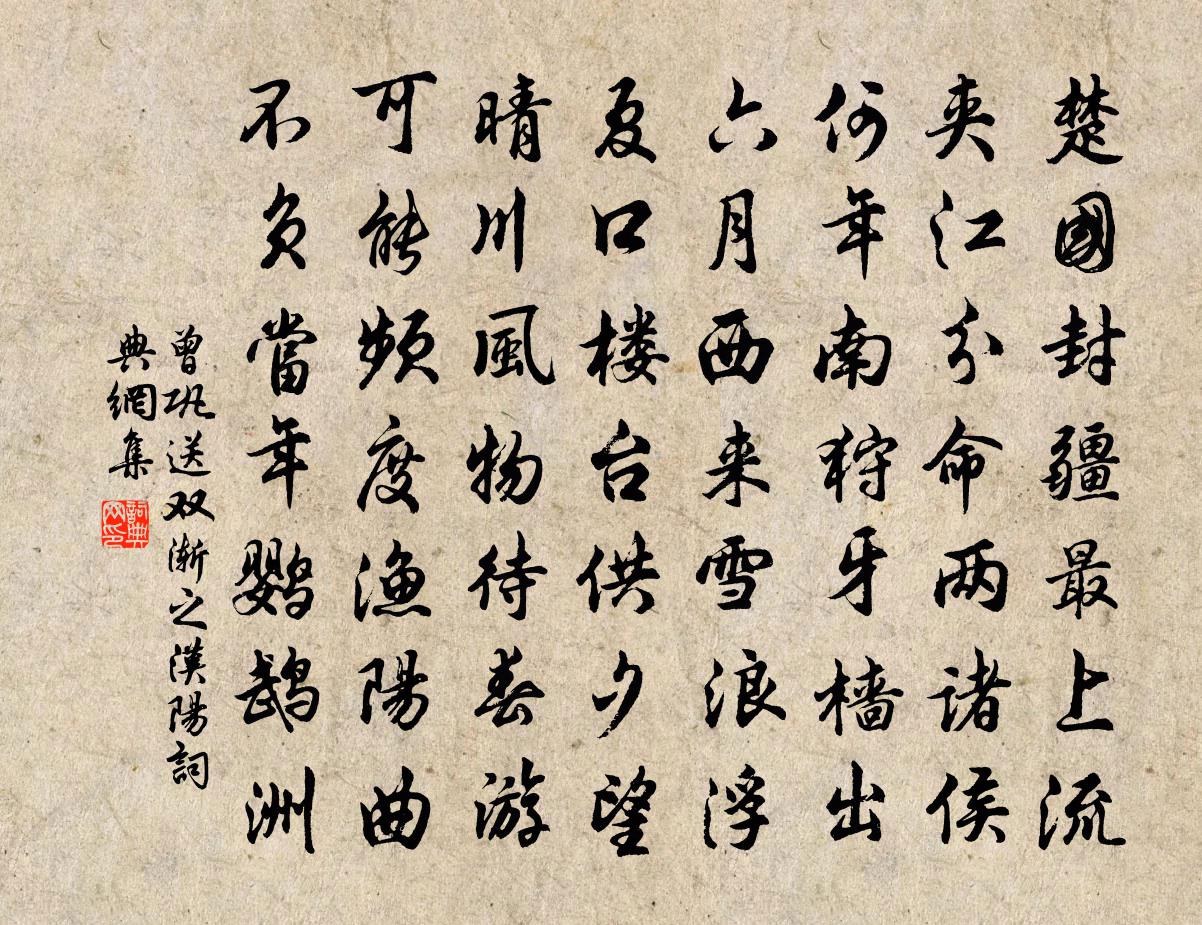 楚國封疆最上流
夹江分命两诸侯
何年南狩牙樯出
六月西来雪浪浮
夏口楼台供夕望
晴川風物待春游
可能频度渔陽曲
不负當年鹦鹉洲
曾巩送双渐之漢陽詞
典網集
詞典网印